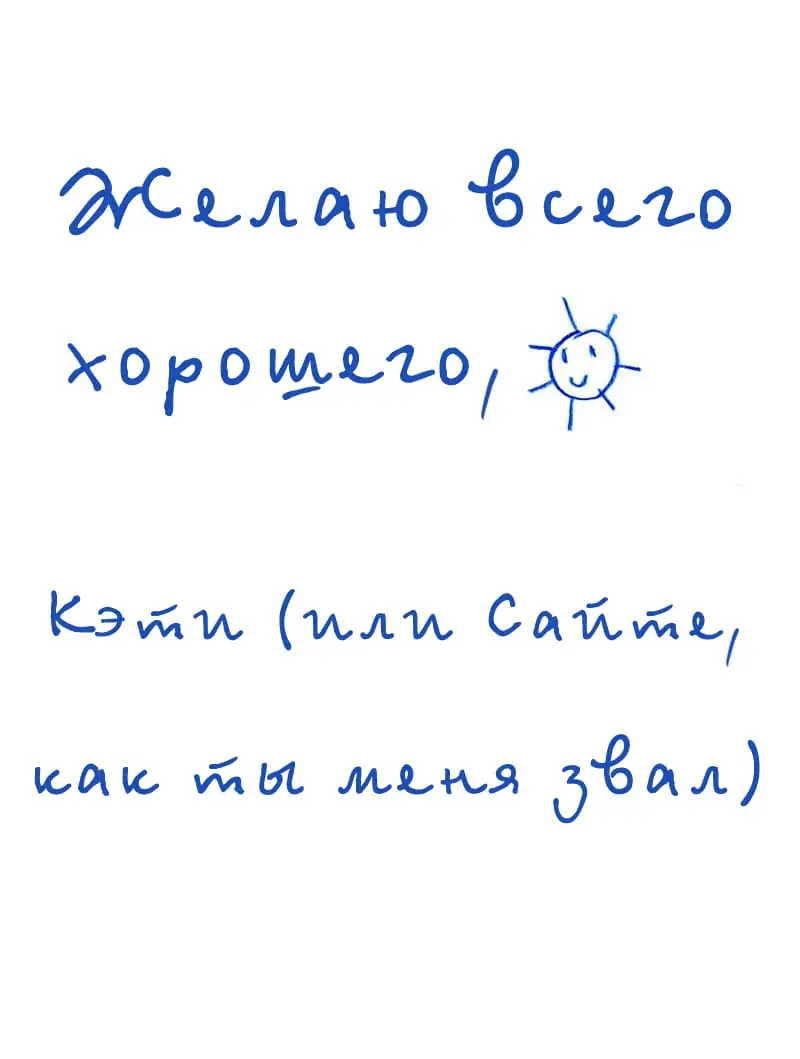 Желаю всего
хорошего,
Кэти (или Сайте,
как ты меня звал)